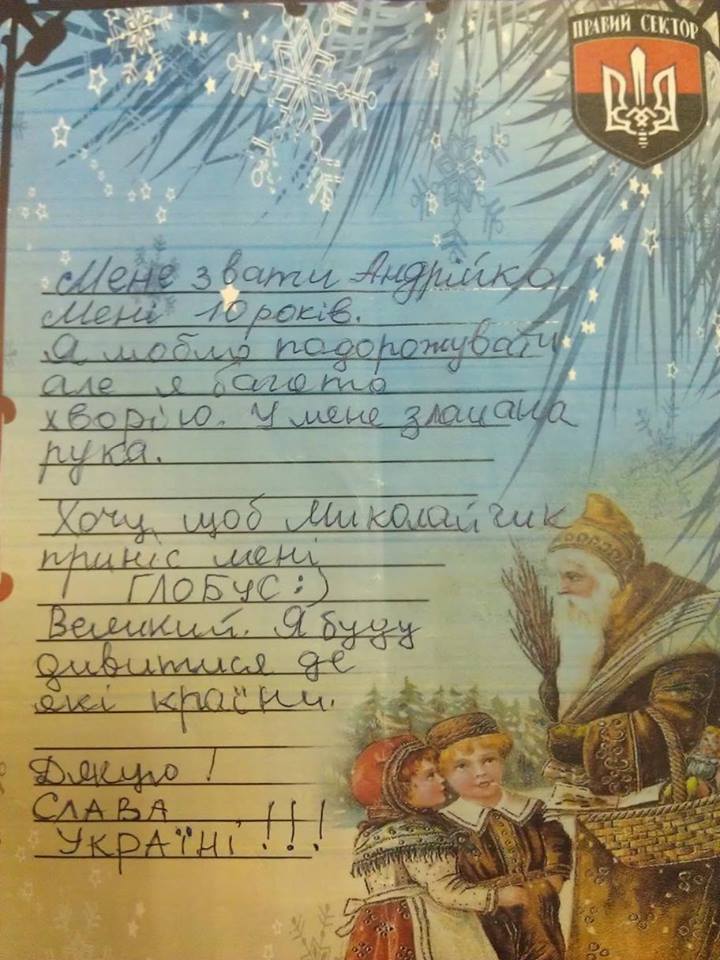 ПРАВИЙ СЕКТОР
Мене звати Андрійко
Мені 10 років.
Я люблю подорожувати
але я багато
хворію. У мене зламана
рука.
Хочу, щоб Миколайчик
приніс мені
ГЛОБУС :)
Великий. Я буду
дивитися де
які країни.
Дякую!
СЛАВА
УКРАЇНІ!!!